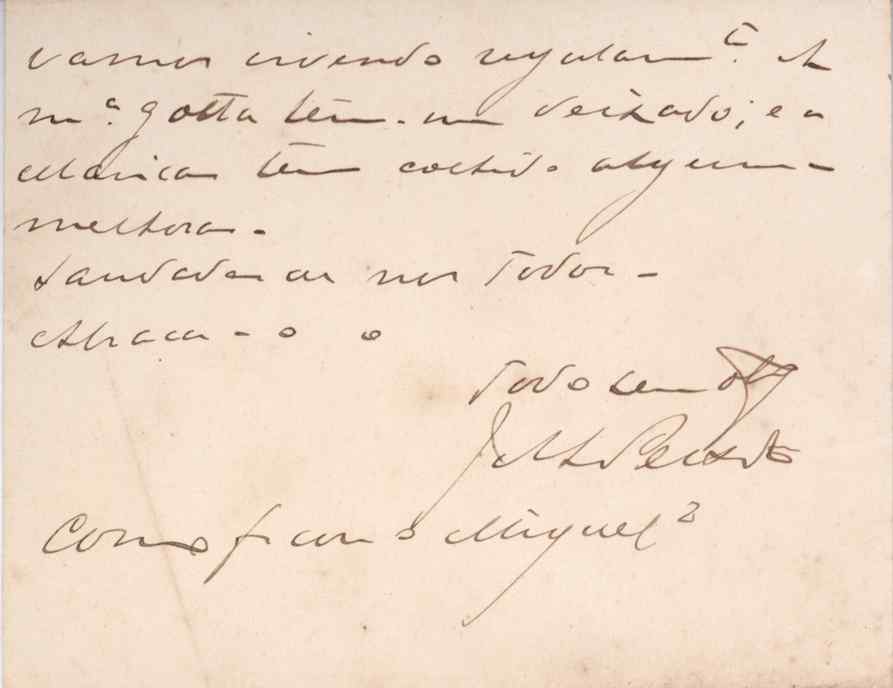 vamos vivendo regularm.te A
m.a gotta tem-me deixado; e a
Marica tem colhido alguma
melhora.
Saudades a nós todos.
Abraça-o o
Todo seu
Peixoto
Como ficou o Miguel?